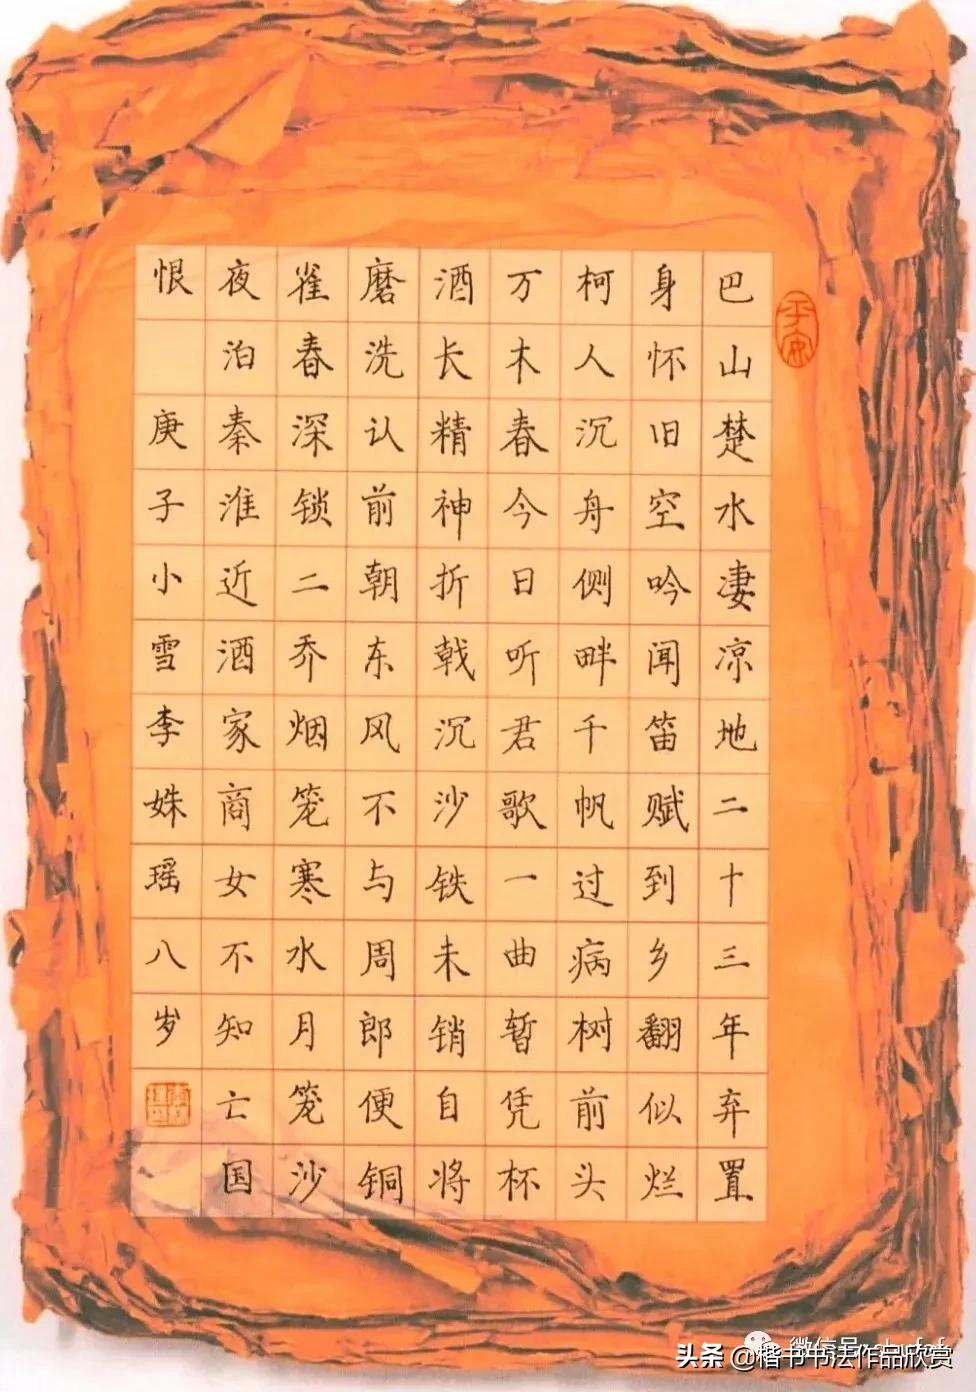 平安
巴山楚水凄凉地二十三年弃置
身怀旧空吟闻笛赋到乡翻似烂
柯人沉舟侧畔千帆过病树前头
万木春今日听君歌一曲暂凭杯
酒长精神折戟沉沙铁未销自将
磨洗认前朝东风不与周郎便铜
雀春深锁二乔烟笼寒水月笼沙
夜泊秦淮近酒家商女不知亡国
恨 庚子小雪李姝瑶八岁
头条 @楷书书法作品欣赏